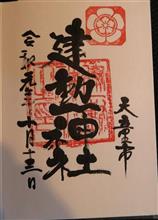 天童市
建勲神社
令和年十月十三日